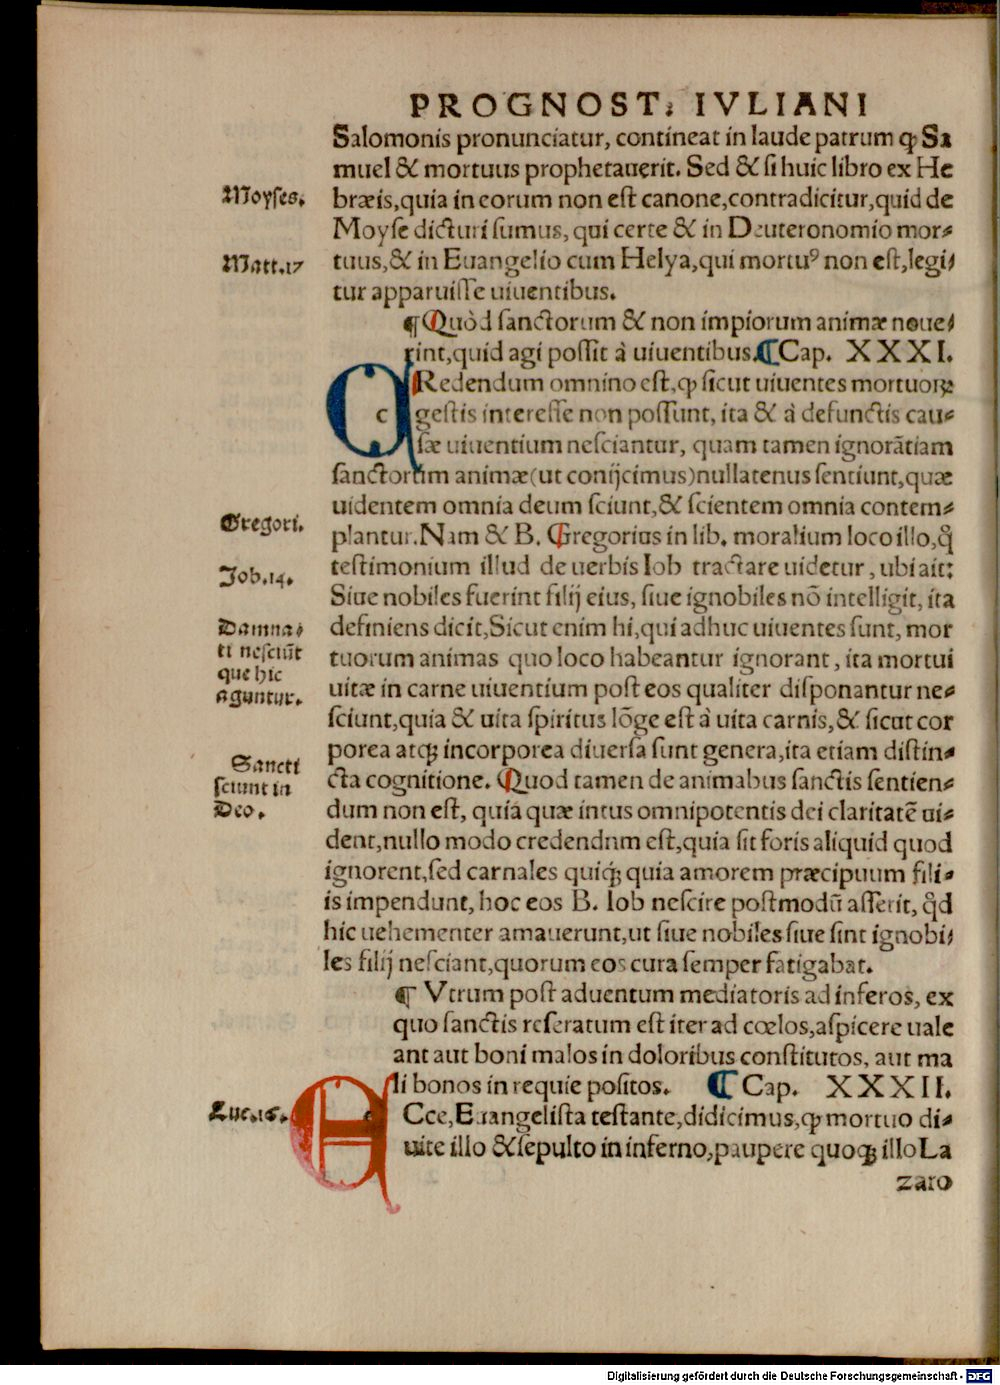 PROGNOST. IVLIANI
Salomonis pronunciatur, contineat in laude patrum ꝙ Sa
muel & mortuus prophetauerit. Sed & si huic libro ex He
Moyses.
bræis, quia in eorum non est canone, contradicitur, quid de
Moyse dicturi sumus, qui certe & in Deuteronomio mor⸗
Matt.17
tuus, & in Euangelio cum Helya, qui mortuꝰ non est, legi⸗
tur apparuisse uiuentibus.
¶ Quòd sanctorum & non impiorum animæ noue⸗
rint, quid agi possit à uiuentibus. ¶ Cap. XXXI.
CRedendum omnino est, ꝙ sicut uiuentes mortuoꝝ
gestis interesse non possunt, ita & à defunctis cau⸗
sæ uiuentium nesciantur, quam tamen ignorãtiam
sanctorum animæ (ut conijcimus) nullatenus sentiunt, quæ
uidentem omnia deum sciunt, & scientem omnia contem⸗
Gregori.
plantur. Nam & B. Gregorius in lib. moralium loco illo, q̃
Job.14.
testimonium illud de uerbis Iob tractare uidetur, ubi ait:
Siue nobiles fuerint filij eius, siue ignobiles nõ intelligit, ita
Damna⸗
ti nesciũt
que hic
aguntur.
definiens dicit, Sicut enim hi, qui adhuc uiuentes sunt, mor
tuorum animas quo loco habeantur ignorant, ita mortui
uitæ in carne uiuentium post eos qualiter disponantur ne⸗
sciunt, quia & uita spiritus lõge est à uita carnis, & sicut cor
porea atqꝫ incorporea diuersa sunt genera, ita etiam distin⸗
Sancti
sciunt in
Deo.
cta cognitione. Quod tamen de animabus sanctis sentien⸗
dum non est, quia quæ intus omnipotentis dei claritatẽ ui⸗
dent, nullo modo credendnm est, quia sit foris aliquid quod
ignorent, sed carnales quiqꝫ quia amorem præcipuum fili⸗
is impendunt, hoc eos B. Iob nescire postmodũ asserit, q̃d
hic uehementer amauerunt, ut siue nobiles siue sint ignobi⸗
les filij nesciant, quorum eos cura semper fatigabat.
¶ Vtrum post aduentum mediatoris ad inferos, ex
quo sanctis reseratum est iter ad cœlos, aspicere uale
ant aut boni malos in doloribus constitutos, aut ma
li bonos in requie positos. ¶ Cap. XXXII.
Luc.16.
ECce, Euangelista testante, didicimus, ꝙ mortuo di⸗
uite illo & sepulto in inferno, paupere quoqꝫ illo La
zaro
Digitalisierung gefördert durch die Deutsche Forschungsgemeinschaft - DFG